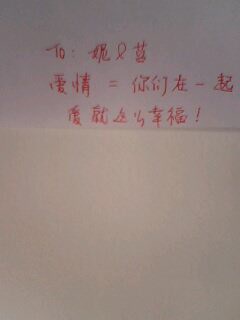 To: 妮&芸
爱情 = 你们在一起
爱就这么幸福!